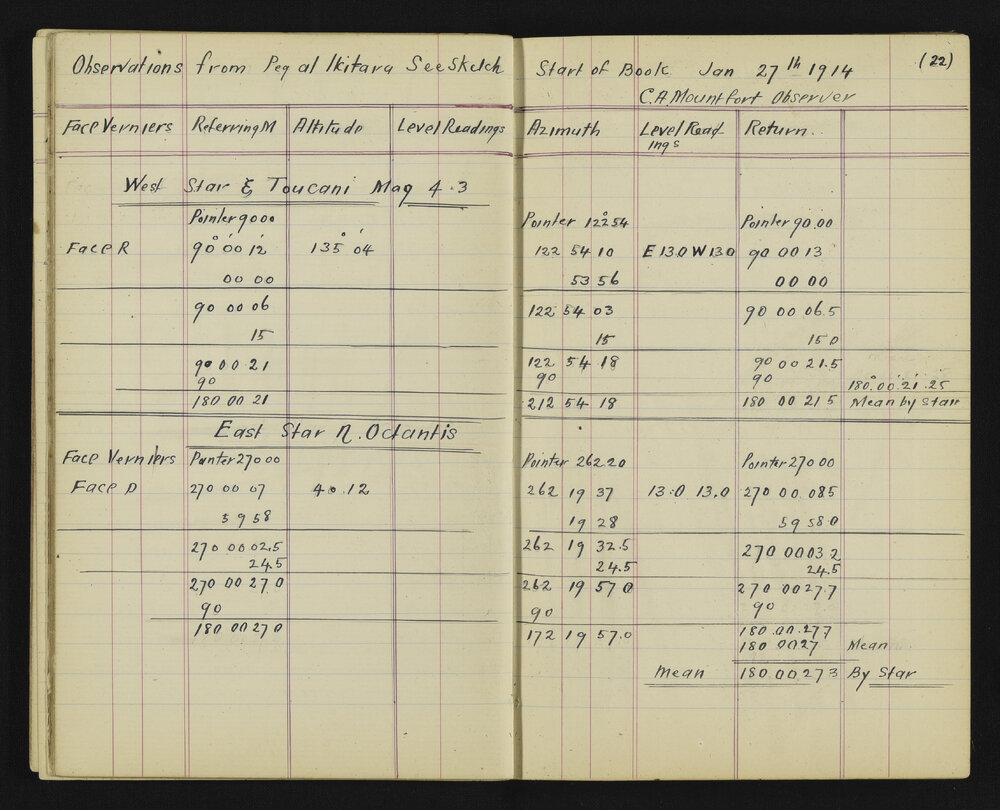 Observations from Peg at Ikitara See Sketch
Face Verniers Referring M Altitude Level Readings
West Star ξ Toucani Mag 4.3
Pointer 90 00
Face R 90° 00' 12 135° 04'
00 00
90 00 06
15
90 00 21
90
180 00 21
East Star N. Octantis
Face Verniers Pointer 270 00
Face D 270 00 07 40.12
59 58
270 00 02.5
24.5
270 00 27 0
90
180 00 27 0
Start of Book Jan 27th 1914 (22)
C.A. Mountfort Observer
Azimuth Level Read Return
ings
Pointer 122° 54 Pointer 90.00
122 54 10 E 13.0 W 13.0 90 00 13
53 56 00 00
122 54 03 90 00 06.5
15 15 0
122 54 18 90 00 21.5
90 90 180.00.21.25
212 54 18 180 00 21 5 Mean by Star
Pointer 262.20 Pointer 270 00
262 19 37 13.0 13.0 270 00 085
19 28 59 58 0
262 19 32.5 270 00 03 2
24.5 24.5
262 19 57 0 270 00 27.7
90 90
172 19 57.0 180.00.27 7
180 00 27 Mean
Mean 180.00.27 3 By Star